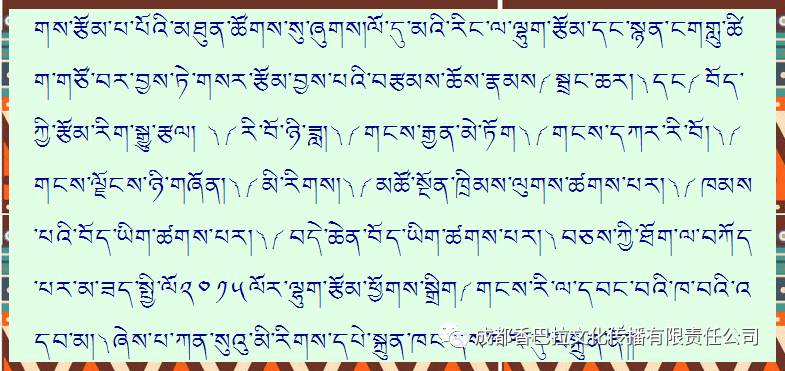 གས་རྩོམ་པ་པོའི་མཐུན་ཚོགས་སུ་ཞུགས།ལོ་དུ་མའི་རིང་ལ་ལྷུག་རྩོམ་དང་སྙན་ངགགླུ་ཚི
ག་གཙོ་བར་བྱས་ཏེ་གསར་རྩོམ་བྱས་པའི་བརྩམས་ཆོས་རྣམས༼སྦྲང་ཆར།༽དང༼བོད་
ཀྱི་རྩོམ་རིག་སྒྱུ་རྩལ། ༽༼རི་བོ་ཉི་ཟླ།༽༼གངས་རྒྱན་མེ་ཏོག༽༼གངས་དཀར་རི་བོ།༽༼
གངས་ལྗོངས་ཉི་གཞོན།༽༼མི་རིགས།༽༼མཚོ་སྔོན་ཁྲིམས་ལུགས་ཚགས་པར།༽༼ཁམས
་པའི་བོད་ཡིག་ཚགས་པར།༽༼བདེ་ཆེན་བོད་ཡིག་ཚགས་པར།༽བཅས་ཀྱི་ཐོག་ལ་བཀོད
་པར་མ་ཟད་སྤྱི་ལོ༢༠༡༥ལོར་ལྷུག་རྩོམ་ཕྱོགས་སྒྲིག༼གངས་རི་ལ་དབང་བའི་ཁ་བའི་འ
དབ་མ།༽ཞེས་པ་ཀན་སུའུ་མི་རིགས་དཔེ་སྐྲུན་ཁང་
成都香巴拉文化传播有限责任公司